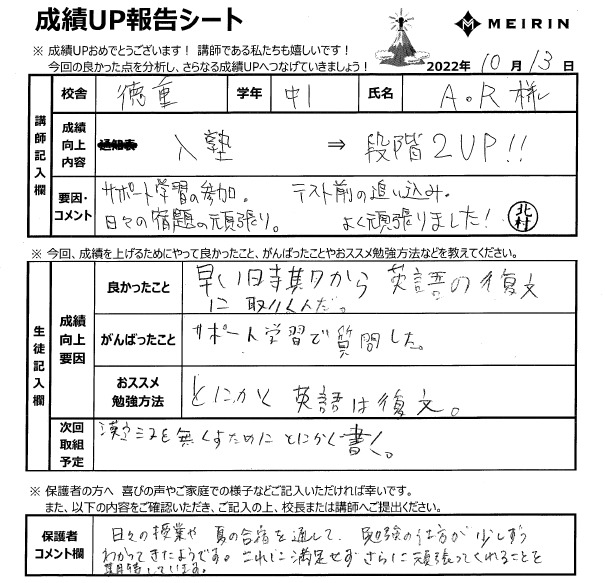 成績UP報告シート
MEIRIN
※ 成績UPおめでとうございます！ 講師である私たちも嬉しいです！
今回の良かった点を分析し、さらなる成績UPへつなげていきましょう！
2022年 10月 13日
校舎 徳重 学年 中1 氏名 A.R 様
講師記入欄
成績向上内容 通知表 入塾 ⇒ 段階2UP!!
要因・コメント サポート学習の参加。 テスト前の追い込み。
日々の宿題の頑張り。 よく頑張りました！ 北村
※ 今回、成績を上げるためにやって良かったこと、がんばったことやおススメ勉強方法などを教えてください。
生徒記入欄
成績向上要因
良かったこと 早い時期から 英語の復文
に取りくんだ。
がんばったこと サポート学習で質問した。
おススメ勉強方法 とにかく 英語は復文。
次回取組予定 漢字ミスを無くすために とにかく書く。
※ 保護者の方へ 喜びの声やご家庭での様子などご記入いただければ幸いです。
また、以下の内容をご確認いただき、ご記入の上、校長または講師へご提出ください。
保護者コメント欄 日々の授業や 夏の合宿を通して、勉強の仕方が少しずつ
わかってきたようです。これに満足せず さらに頑張ってくれることを
期待しています。